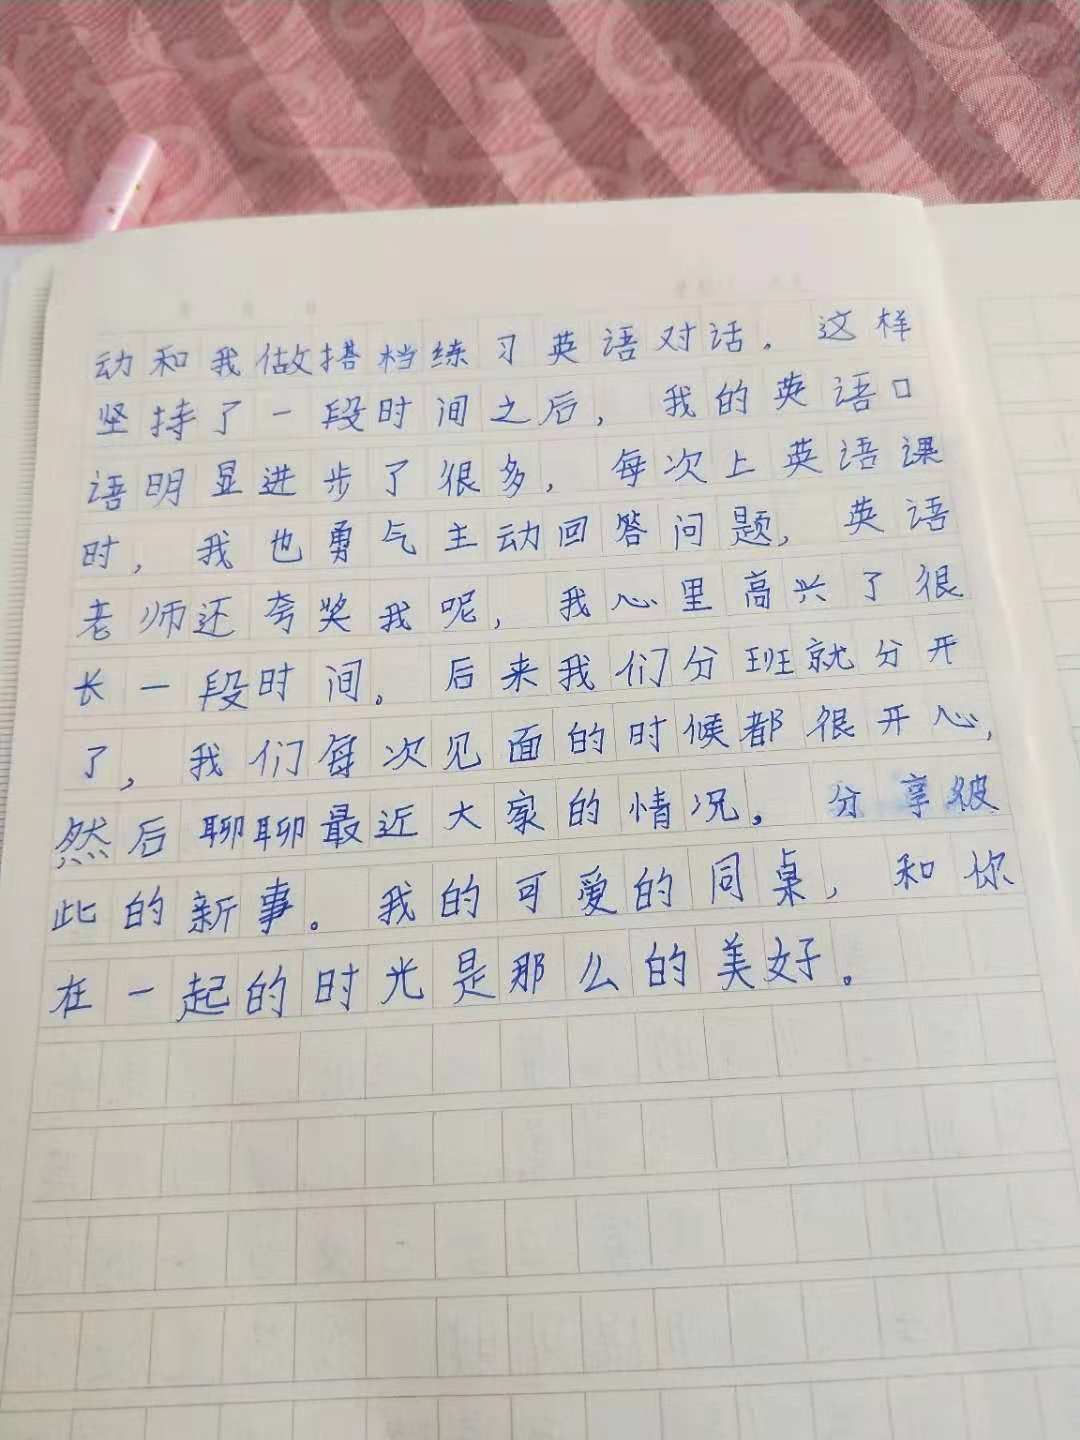 动和我做搭档练习英语对话。这样
坚持了一段时间之后,我的英语口
语明显进步了很多,每次上英语课
时,我也勇气主动回答问题,英语
老师还夸奖我呢,我心里高兴了很
长一段时间。后来我们分班就分开
了,我们每次见面的时候都很开心,
然后聊聊最近大家的情况。分享彼
此的新事。我的可爱的同桌,和你
在一起的时光是那么的美好。